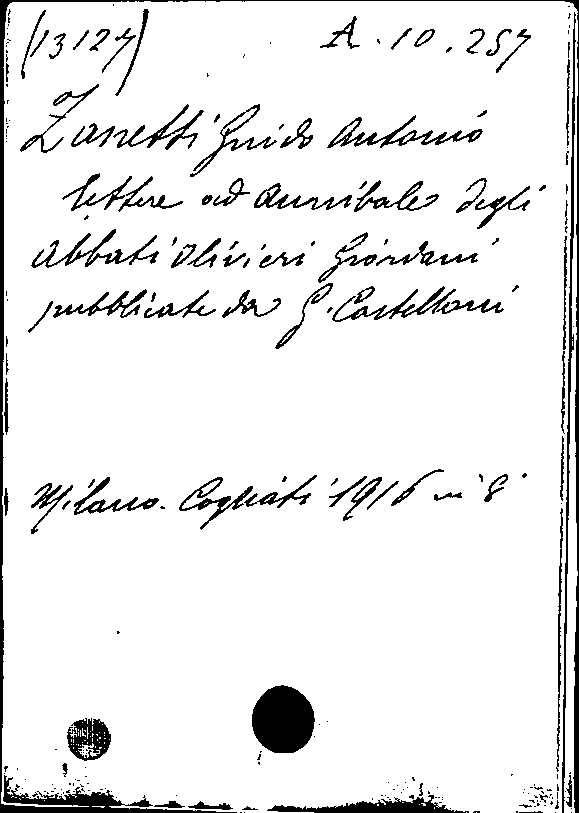 (13127) A. 10. 257
Zanetti Guido Antonio
lettere ad Annibale degli
Abbati Olivieri Giordani
pubblicate da G. Castellani
Milano. Cogliati 1916 in 8°